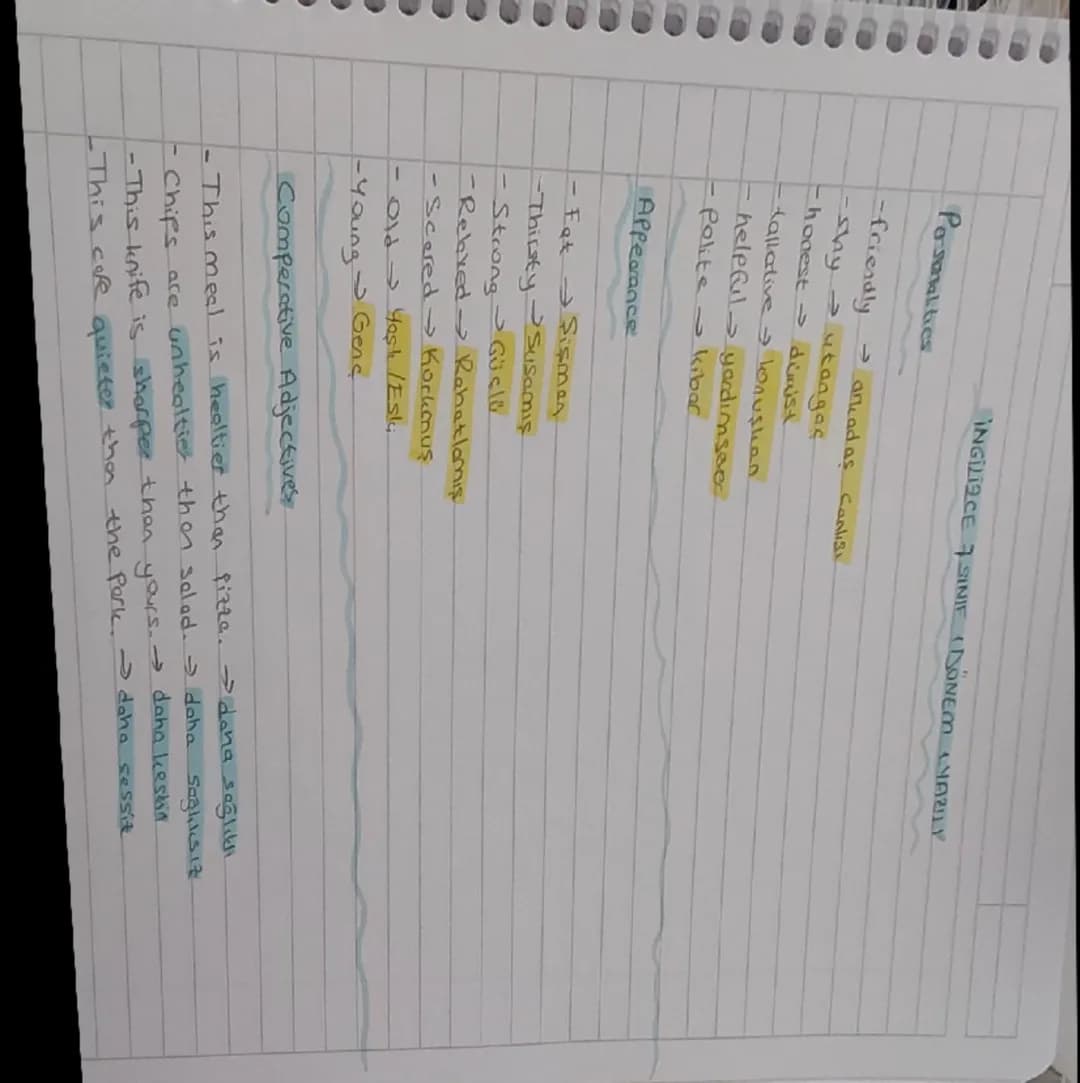 İNGİLİZCE 7.SINIF 1.DÖNEM 1.YAZILI
Personalities
- friendly → arkadaş canlısı
- shy → utangaç
- honest → dürüst
- talkative → konuşkan
- helpful → yardımsever
- polite → kibar
Appearance
- Fat → Şişman
- Thirsty → Susamış
- Strong → Güçlü
- Relaxed → Rahatlamış
- Scared → Korkmuş
- Old → Yaşlı/Eski
- Young → Genç
Comperative Adjectives
- This meal is healtier than pizza. → daha sağlıklı
- Chips are unhealtier than salad. → daha sağlıksız
- This knife is sharper than yours. → daha keskin
- This cafe quieter than the park. → daha sessiz